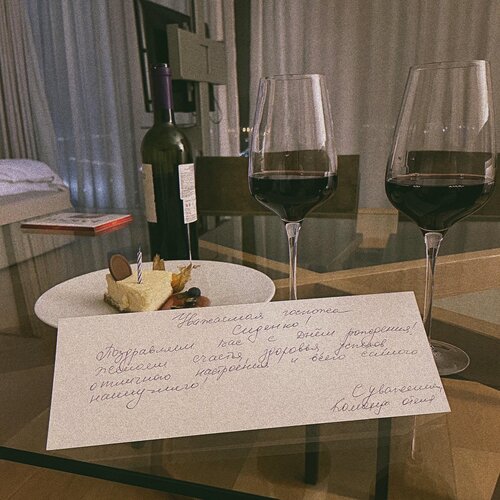 Уважаемая госпожа
Сиденко!
Поздравляем Вас с Днём рождения!
Желаем счастья, здоровья, успехов,
отличного настроения и всего самого
наилучшего!
С уважением,
Команда отеля